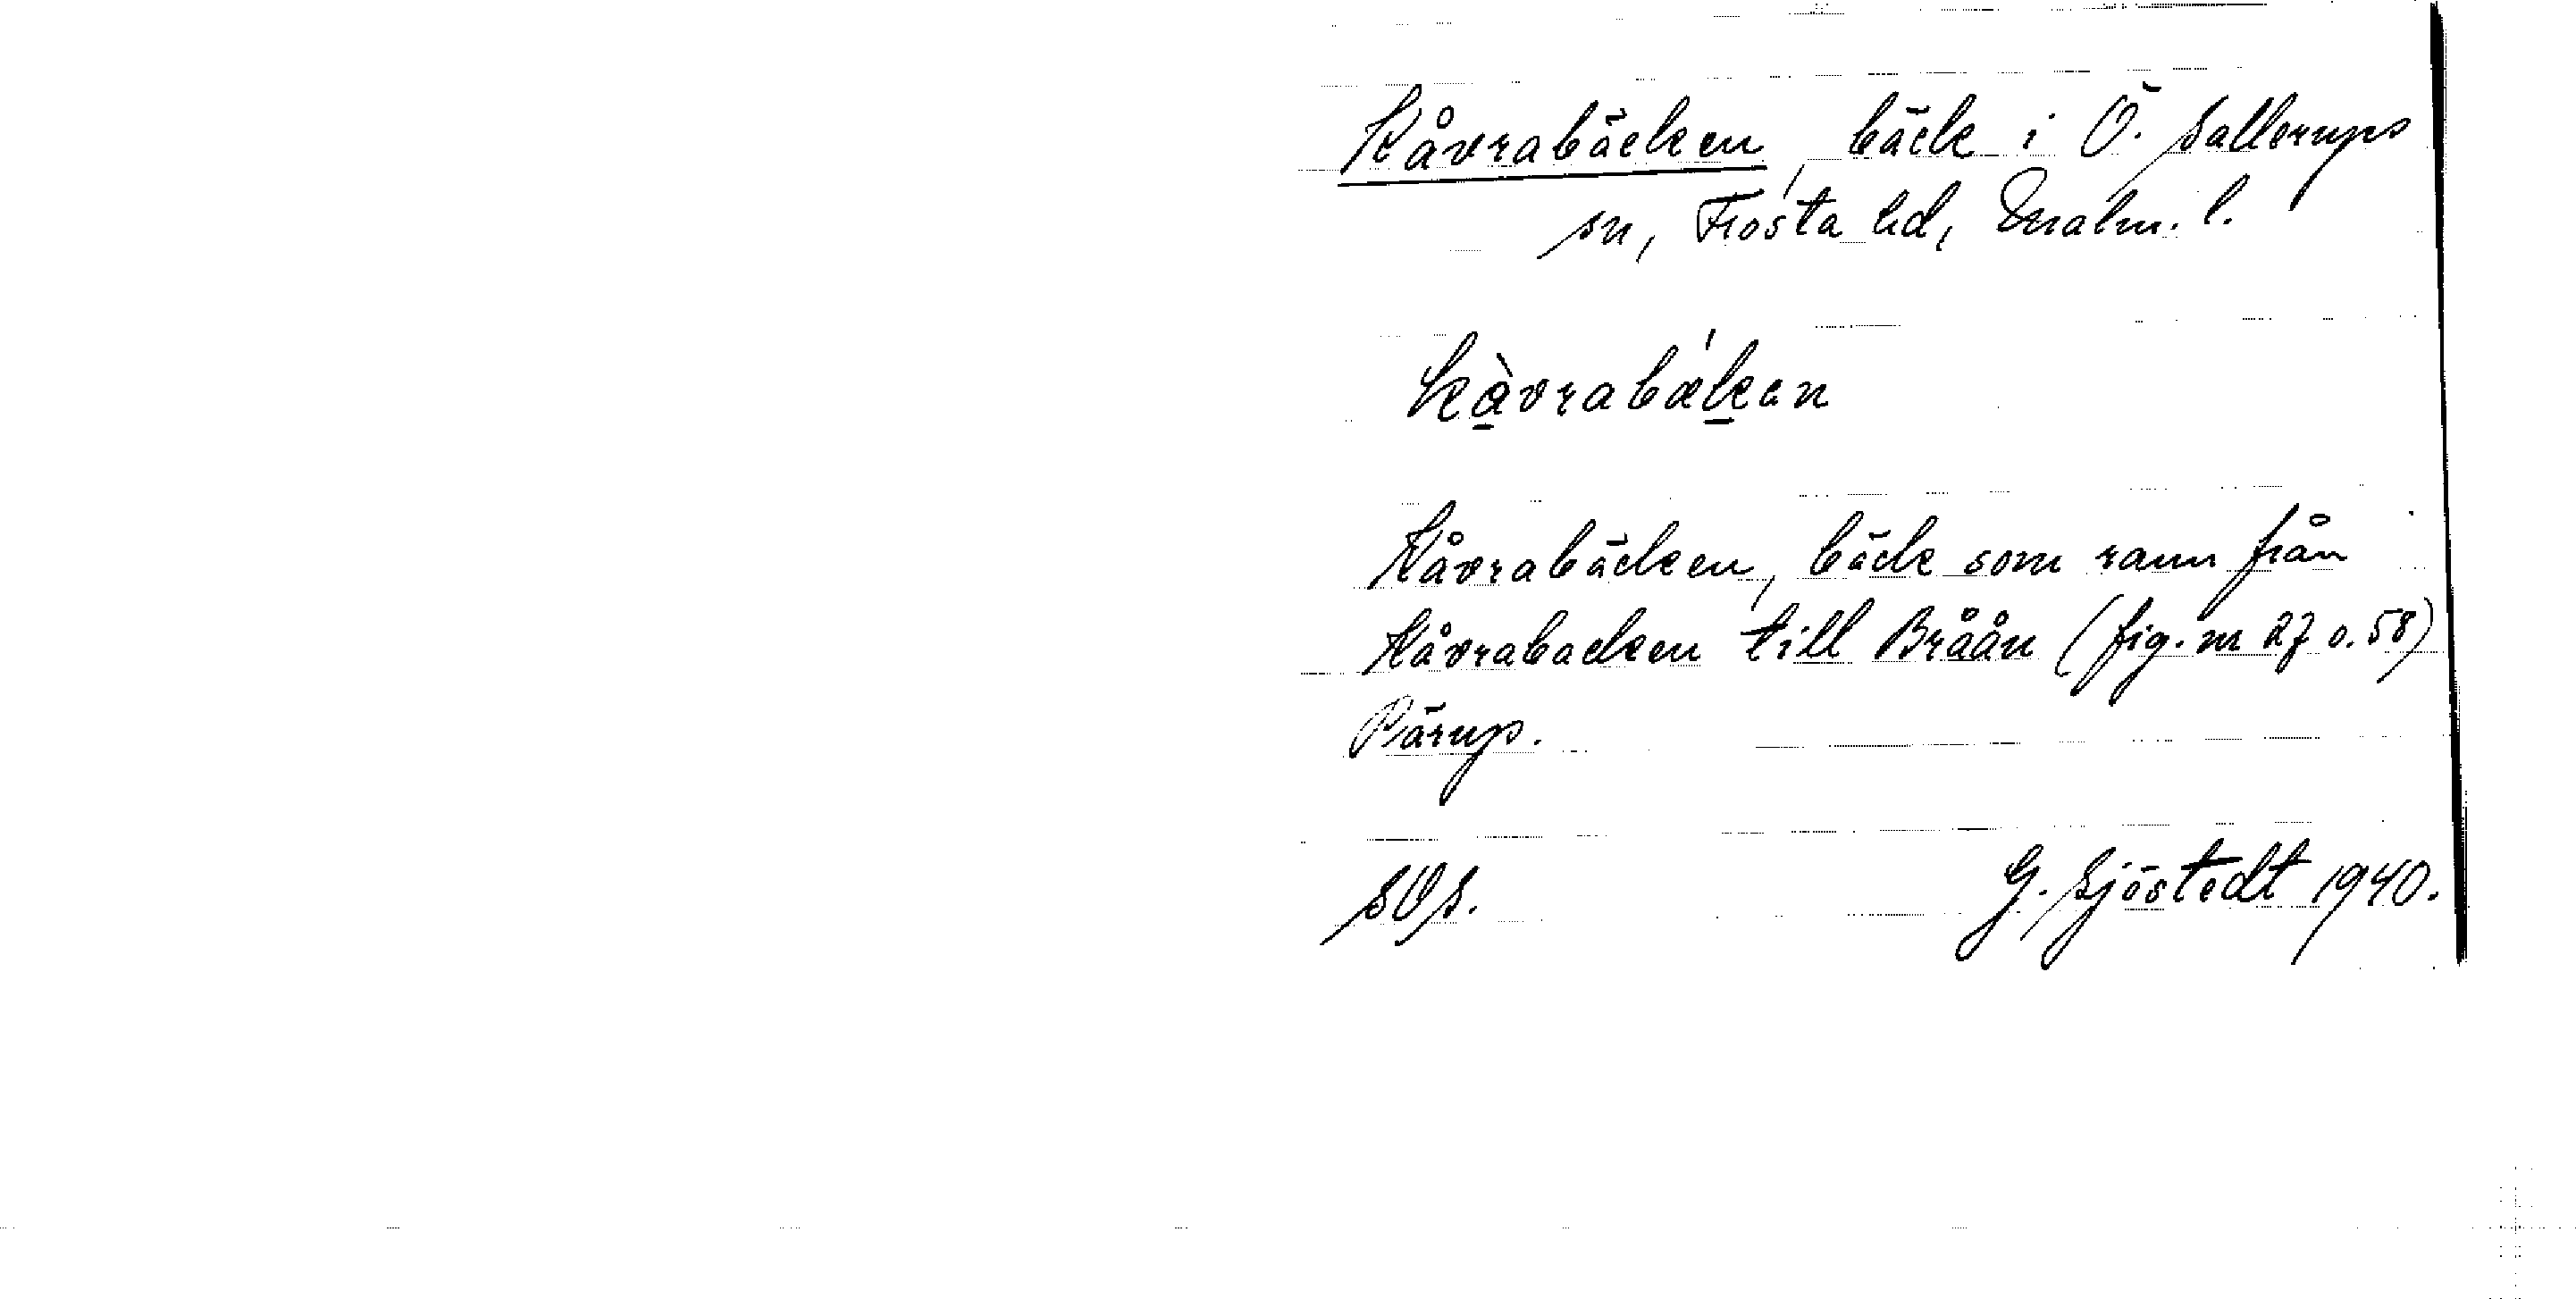 Kåvrabäcken, bäck i Ö. Sallerups
sn, Frosta hd, Malm. l.
kàvrabǽken
Kåvrabäcken, bäck som rann från
Kåvrabacken till Bråån (fig. nr 27 o. 58)
Pärup.
SOS. G. Sjöstedt 1940.